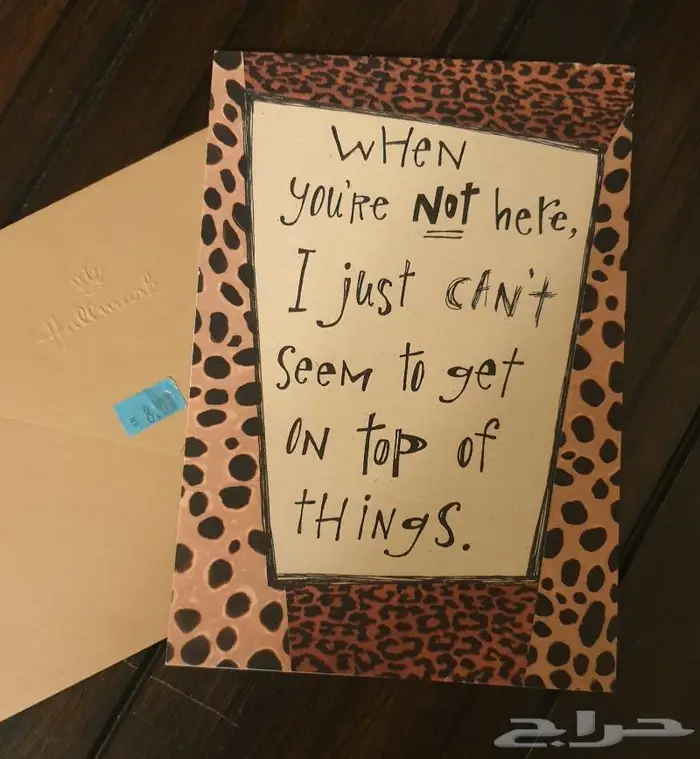 WHEN
YOU'RE NOT here,
I just CAN'T
SEEM to get
ON TOP of
THINGS.
Hallmark
SR 8.00
حراج